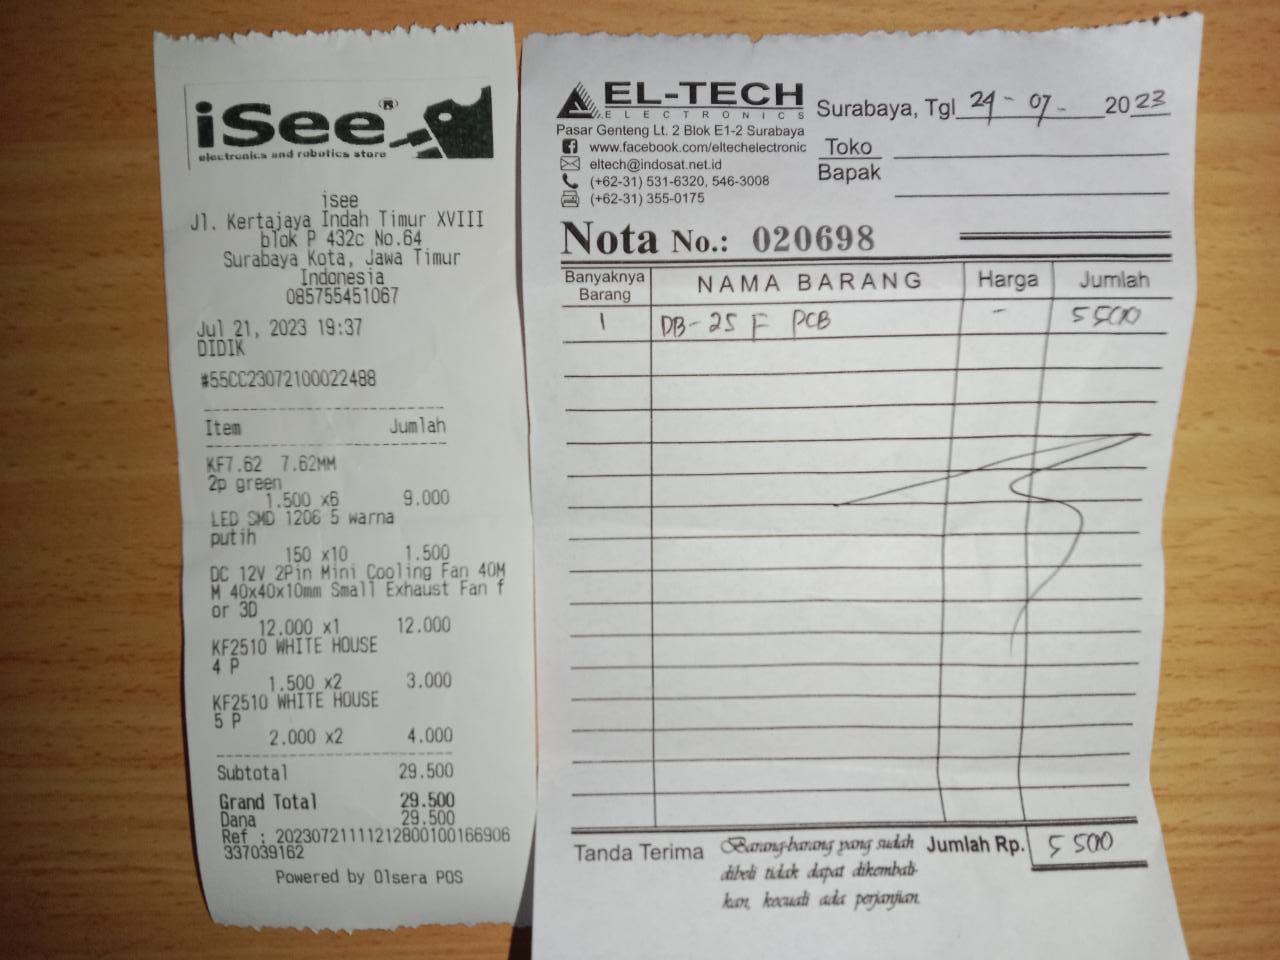 iSee®
electronics and robotics store
isee
Jl. Kertajaya Indah Timur XVIII
blok P 432c No.64
Surabaya Kota, Jawa Timur
Indonesia
085755451067
Jul 21, 2023 19:37
DIDIK
#55CC23072100022488
Item Jumlah
KF7.62 7.62MM
2p green
1.500 x6 9.000
LED SMD 1206 5 warna
putih
150 x10 1.500
DC 12V 2Pin Mini Cooling Fan 40M
M 40x40x10mm Small Exhaust Fan f
or 3D
12.000 x1 12.000
KF2510 WHITE HOUSE
4 P
1.500 x2 3.000
KF2510 WHITE HOUSE
5 P
2.000 x2 4.000
Subtotal 29.500
Grand Total 29.500
Dana 29.500
Ref : 20230721111212800100166906
337039162
Powered by Olsera POS
EL-TECH
ELECTRONICS
Pasar Genteng Lt. 2 Blok E1-2 Surabaya
www.facebook.com/eltechelectronic
eltech@indosat.net.id
(+62-31) 531-6320, 546-3008
(+62-31) 355-0175
Surabaya, Tgl 24 - 07 - 2023
Toko
Bapak
Nota No.: 020698
Banyaknya Barang NAMA BARANG Harga Jumlah
1 DB-25 F PCB - 5 500
Tanda Terima
Barang-barang yang sudah
dibeli tidak dapat dikembali-
kan, kecuali ada perjanjian.
Jumlah Rp. 5 500